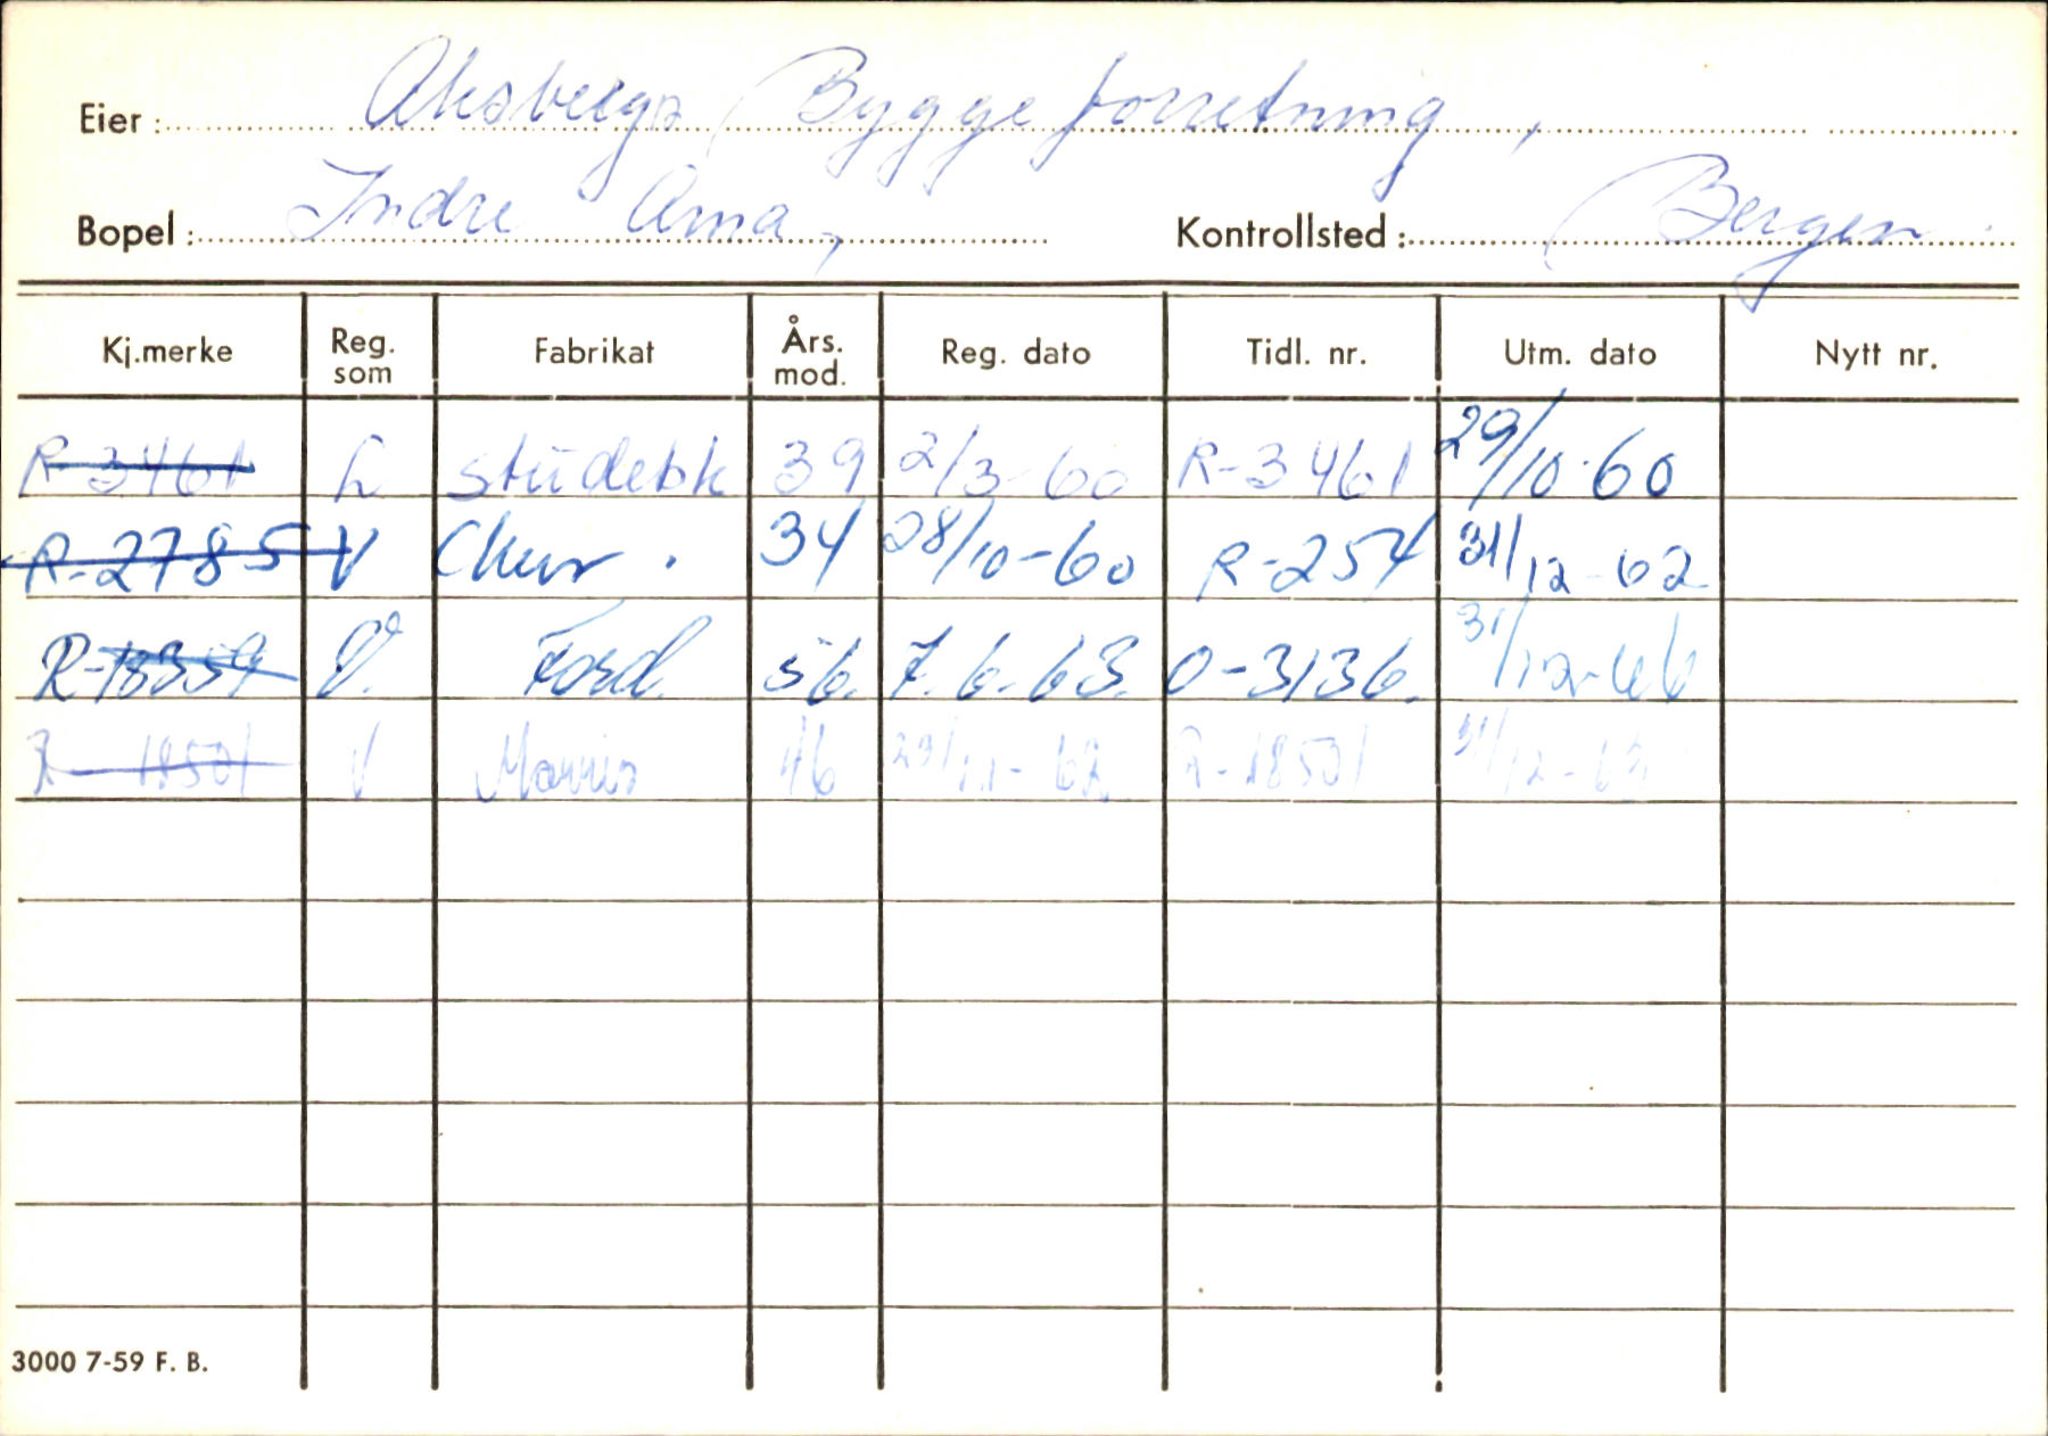 Eier: Aksbergs Byggeforretning,
Bopel: Indre Arna, Kontrollsted: Bergen
Kj.merke Reg. som Fabrikat Års. mod. Reg. dato Tidl. nr. Utm. dato Nytt nr.
R-3461 L Studebk 39 2/3-60 R-3461 29/10-60
R-2785 V Chevr. 34 28/10-60 R-254 31/12-62
R-18359 V. Ford. 56. 7.6.63. O-3136. 31/12-66
R-18501 V Morris 46 29/11-62 R-18501 31/12-63
3000 7-59 F. B.